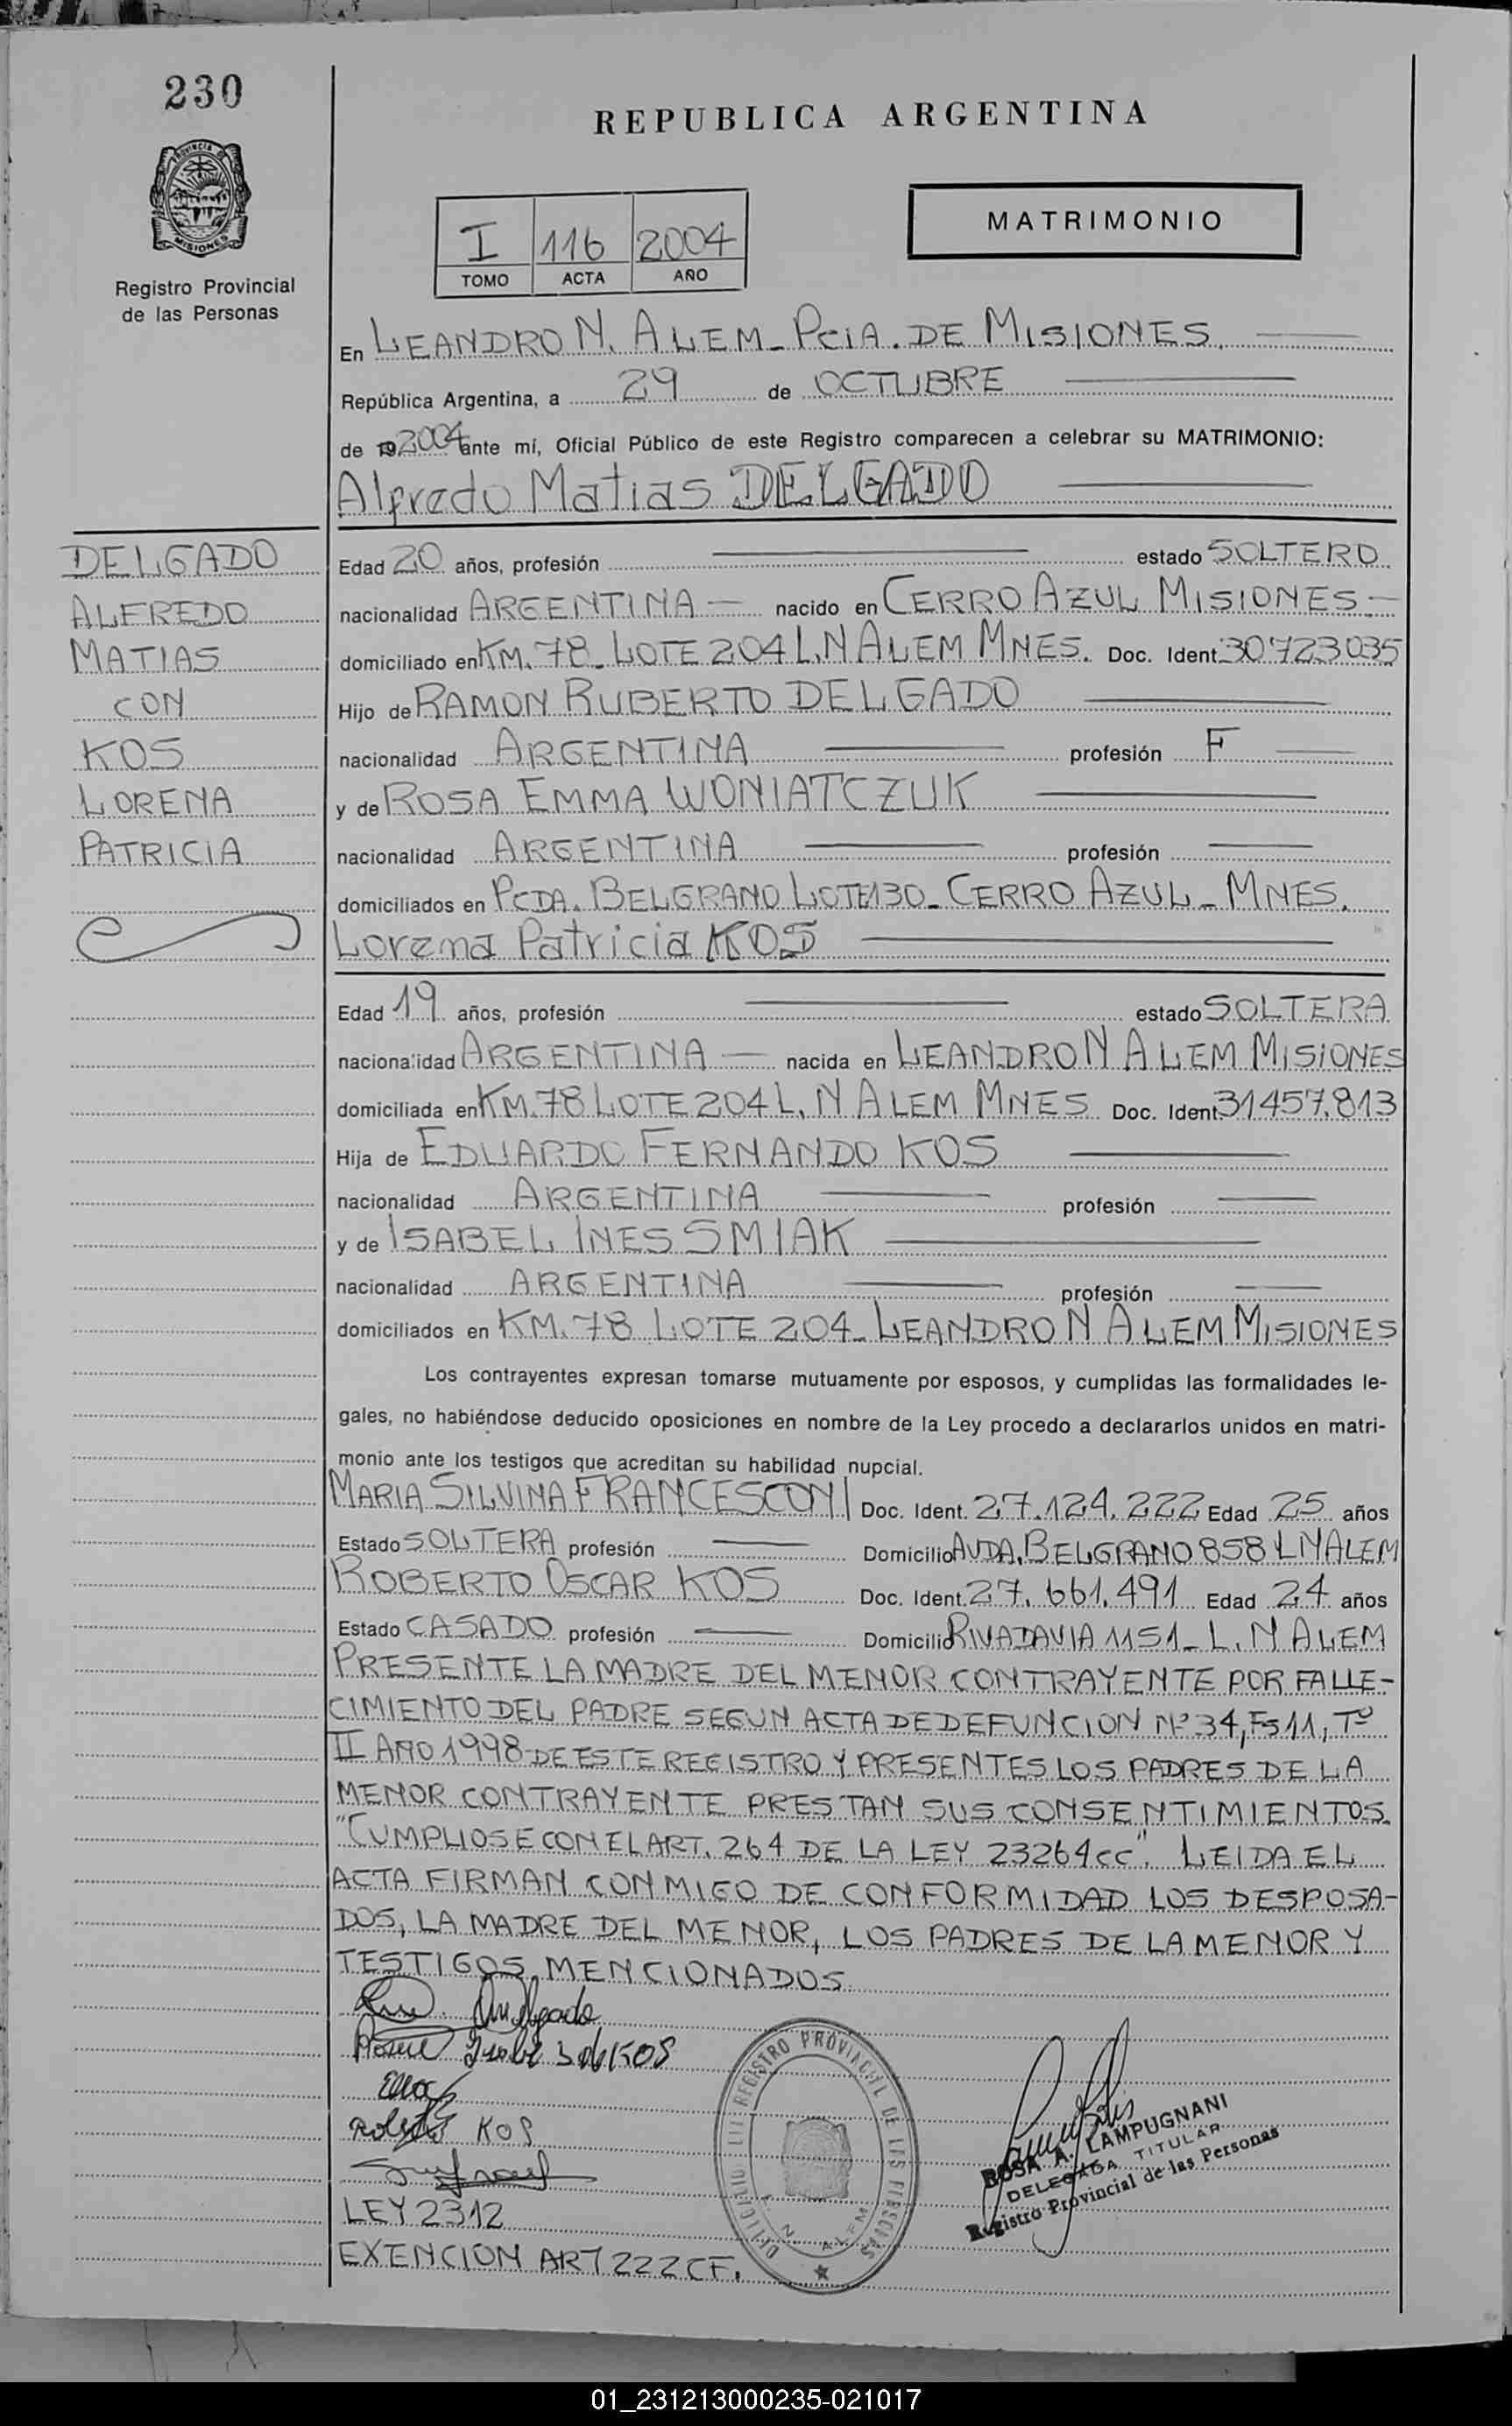 230
REPUBLICA ARGENTINA
PROVINCIA DE
MISIONES
Registro Provincial
de las Personas
MATRIMONIO
I 116 2004
TOMO ACTA AÑO
En LEANDRO N. ALEM - PCIA. DE MISIONES.
República Argentina, a 29 de OCTUBRE
de 19 2004 ante mí, Oficial Público de este Registro comparecen a celebrar su MATRIMONIO:
Alfredo Matias DELGADO
DELGADO
ALFREDO
MATIAS
CON
KOS
LORENA
PATRICIA
Edad 20 años, profesión — estado SOLTERO
nacionalidad ARGENTINA — nacido en CERRO AZUL MISIONES —
domiciliado en KM. 78 - LOTE 204 L.N ALEM MNES. Doc. Ident. 30723035
Hijo de RAMON RUBERTO DELGADO —
nacionalidad ARGENTINA — profesión F —
y de ROSA EMMA WONIATCZUK —
nacionalidad ARGENTINA — profesión —
domiciliados en PCDA. BELGRANO LOTE 130 - CERRO AZUL - MNES.
Lorena Patricia KOS —
Edad 19 años, profesión — estado SOLTERA
nacionalidad ARGENTINA — nacida en LEANDRO N ALEM MISIONES
domiciliada en KM. 78 LOTE 204 L. N ALEM MNES Doc. Ident. 31457.813
Hija de EDUARDO FERNANDO KOS —
nacionalidad ARGENTINA — profesión —
y de ISABEL INES SMIAK —
nacionalidad ARGENTINA — profesión —
domiciliados en KM. 78 LOTE 204 - LEANDRO N ALEM MISIONES
Los contrayentes expresan tomarse mutuamente por esposos, y cumplidas las formalidades le-
gales, no habiéndose deducido oposiciones en nombre de la Ley procedo a declararlos unidos en matri-
monio ante los testigos que acreditan su habilidad nupcial.
MARIA SILVINA FRANCESCONI Doc. Ident. 27.124.222 Edad 25 años
Estado SOLTERA profesión — Domicilio AVDA. BELGRANO 858 L N ALEM
ROBERTO OSCAR KOS Doc. Ident. 27.661.491 Edad 24 años
Estado CASADO profesión — Domicilio RIVADAVIA 1151 - L. N ALEM
PRESENTE LA MADRE DEL MENOR CONTRAYENTE POR FALLE-
CIMIENTO DEL PADRE SEGUN ACTA DE DEFUNCION Nº 34, Fs 11, Tº
II AÑO 1998 DE ESTE REGISTRO Y PRESENTES LOS PADRES DE LA
MENOR CONTRAYENTE PRESTAN SUS CONSENTIMIENTOS.
"CUMPLIOSE CON EL ART. 264 DE LA LEY 23264 CC". LEIDA EL
ACTA FIRMAN CONMIGO DE CONFORMIDAD LOS DESPOSA-
DOS, LA MADRE DEL MENOR, LOS PADRES DE LA MENOR Y
TESTIGOS MENCIONADOS.
KOS
KOS
LEY 2312
EXENCION ART 222 CF.
REGISTRO PROVINCIAL DE LAS PERSONAS
N. ALEM
ROSA A. LAMPUGNANI
DELEGADA TITULAR
Registro Provincial de las Personas
01_231213000235-021017